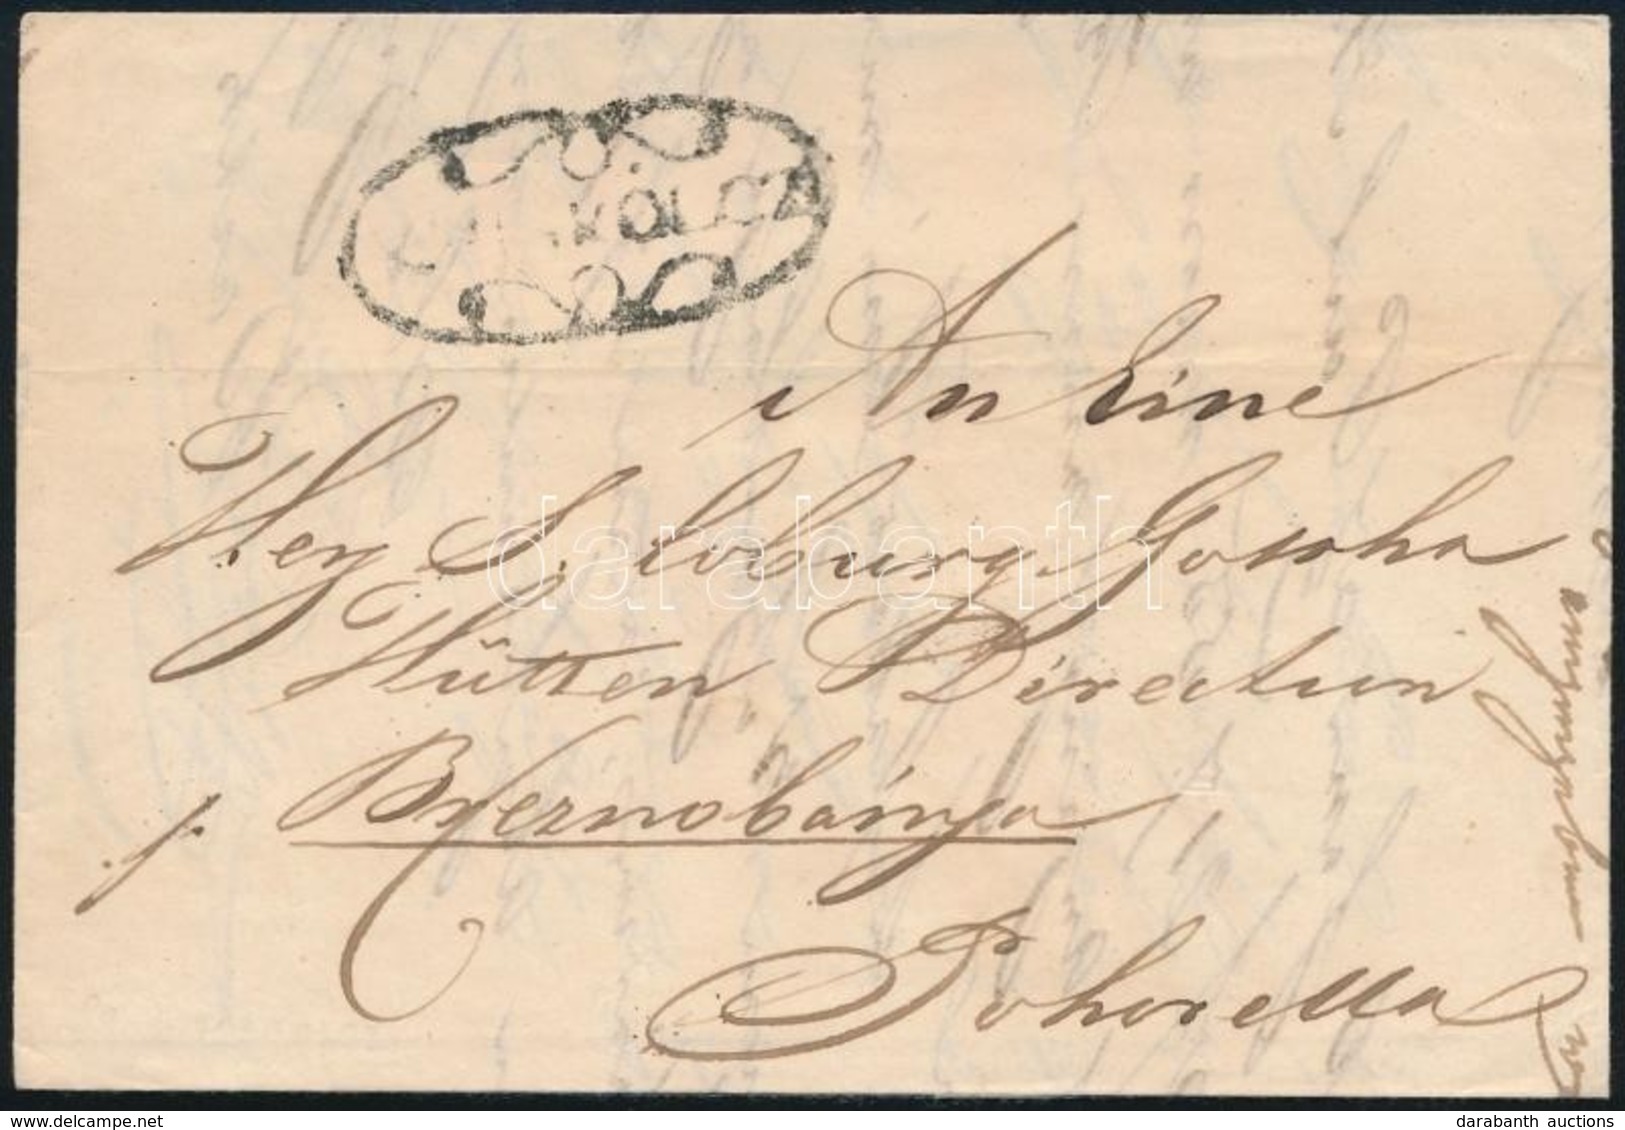 VÖLCZA
An Eine
Herz. S. Coburg Gotha
Hütten Direction
p. Breznobánya
Pohorella
darabanth
darabanth auctions